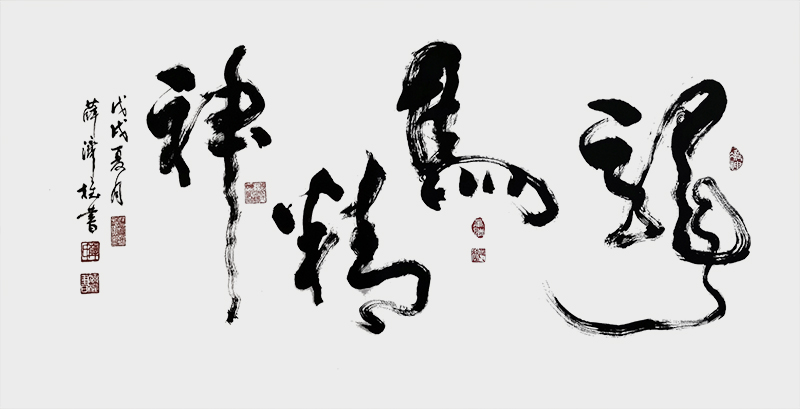 龍馬精神
戊戌夏月
薛澤
書